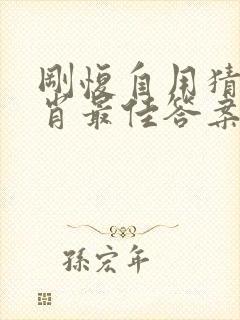 刚愎自用猜
肖最佳答案
孫宏年